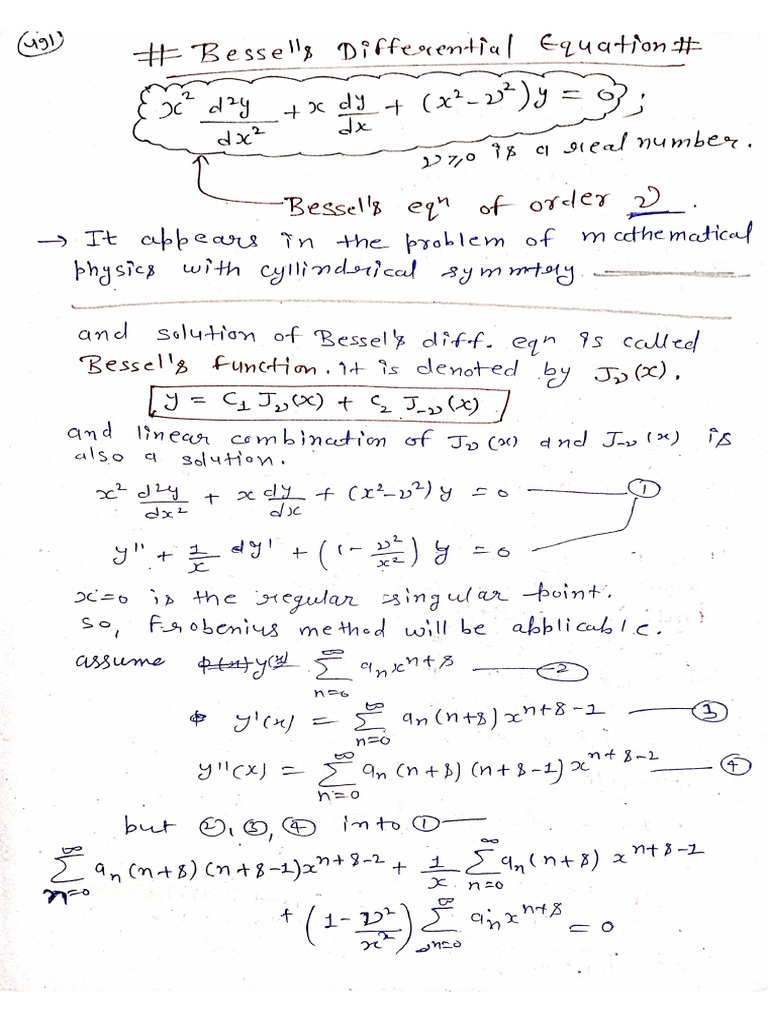 (491)
# Bessel's Differential Equation #
x² d²y/dx² + x dy/dx + (x² - ν²)y = 0 ;
ν ≥ 0 is a real number.
Bessel's eqⁿ of order ν.
→ It appears in the problem of mathematical
physics with cyllinderical symmtery
and solution of Bessel's diff. eqn is called
Bessel's function. it is denoted by Jν(x).
y = C₁ Jν(x) + C₂ J₋ν(x)
and linear combination of Jν(x) and J₋ν(x) is
also a solution.
x² d²y/dx² + x dy/dx + (x² - ν²) y = 0 — ①
y'' + 1/x dy' + (1 - ν²/x²) y = 0
x=0 is the regular singular point.
so, Frobenius method will be applicable.
assume y(x) ∑_{n=0}^{∞} aₙxⁿ⁺⁸ — ②
y'(x) = ∑_{n=0}^{∞} aₙ(n+8)xⁿ⁺⁸⁻¹ — ③
y''(x) = ∑_{n=0}^{∞} aₙ(n+8)(n+8-1)xⁿ⁺⁸⁻² — ④
but ②, ③, ④ into ① —
∑_{n=0}^{∞} aₙ(n+8)(n+8-1)xⁿ⁺⁸⁻² + 1/x ∑_{n=0}^{∞} aₙ(n+8) xⁿ⁺⁸⁻¹
+ (1 - ν²/x²) ∑_{n=0}^{∞} aₙxⁿ⁺⁸ = 0